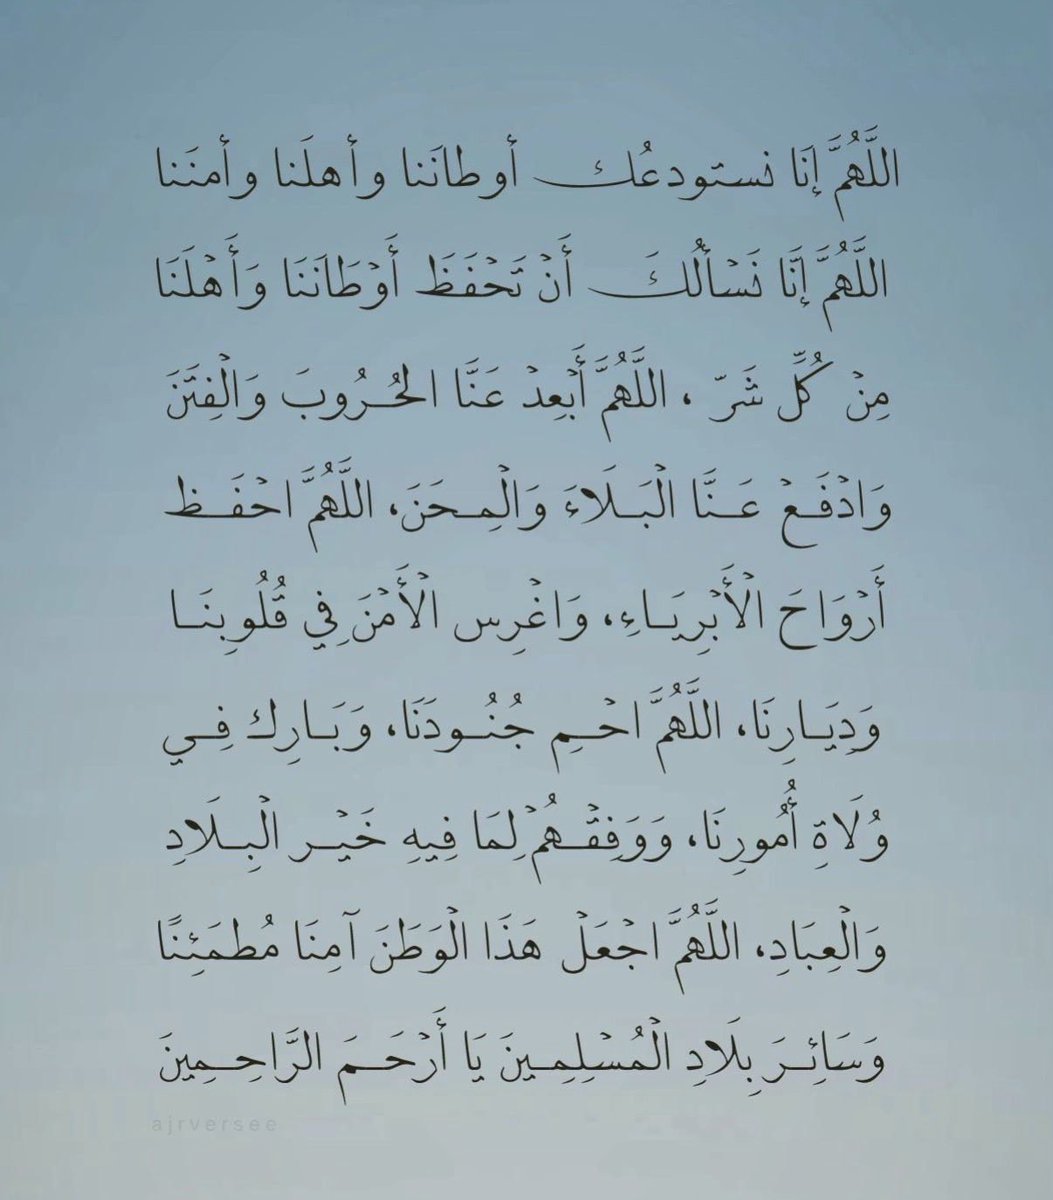 اللَّهُمَّ إنَا نستودعُك أوطانَنا وأهلَنا وأمنَنا
اللَّهُمَّ إنَّا نَسْألُكَ أَنْ تَحْفَظَ أَوْطَانَنَا وَأَهْلَنَا
مِنْ كُلِّ شَرّ ، اللَّهُمَّ أَبْعِدْ عَنَّا الحُرُوبَ وَالْفِتَنَ
وَادْفَعْ عَنَّا الْبَلَاءَ وَالْمِحَنَ، اللَّهُمَّ احْفَظ
أَرْوَاحَ الْأَبْرِيَاءِ، وَاغْرِس الْأَمْنَ فِي قُلُوبِنَا
وَدِيَارِنَا، اللَّهُمَّ احْمِ جُنُودَنَا، وَبَارِك فِي
وُلَاةِ أُمُورِنَا، وَوَفِقْهُمْ لِمَا فِيهِ خَيْر الْبِلَادِ
وَالْعِبَادِ، اللَّهُمَّ اجْعَلْ هَذَا الْوَطَنَ آمِنَا مُطمَئِنًا
وَسَائِرَ بِلَادِ الْمُسْلِمِينَ يَا أَرْحَمَ الرَّاحِمِينَ
ajrversee